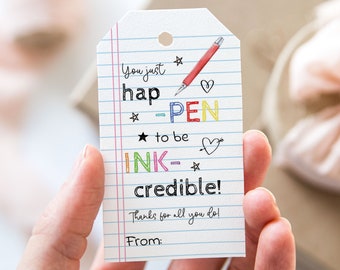 You just
hap
-PEN
to be
INK-
credible!
Thanks for all you do!
From: